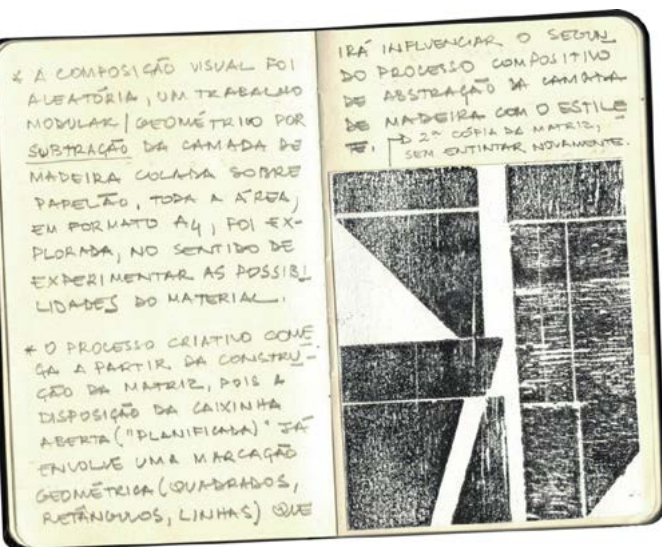 * A COMPOSIÇÃO VISUAL FOI
ALEATÓRIA, UM TRABALHO
MODULAR/GEOMÉTRICO POR
SUBTRAÇÃO DA CAMADA DE
MADEIRA COLADA SOBRE
PAPELÃO, TODA A ÁREA,
EM FORMATO A4, FOI EX-
PLORADA, NO SENTIDO DE
EXPERIMENTAR AS POSSIBI
LIDADES DO MATERIAL.
* O PROCESSO CRIATIVO COME
ÇA A PARTIR DA CONSTRU-
ÇÃO DA MATRIZ, POIS A
DISPOSIÇÃO DA CAIXINHA
ABERTA ("PLANIFICADA") JÁ
ENVOLVE UMA MARCAÇÃO
GEOMÉTRICA (QUADRADOS,
RETÂNGULOS, LINHAS) QUE
IRÁ INFLUENCIAR O SEGUN
DO PROCESSO COMPOSITIVO
DE ABSTRAÇÃO DA CAMADA
DE MADEIRA COM O ESTILE
TE.
2ª CÓPIA DA MATRIZ,
SEM ENTINTAR NOVAMENTE.